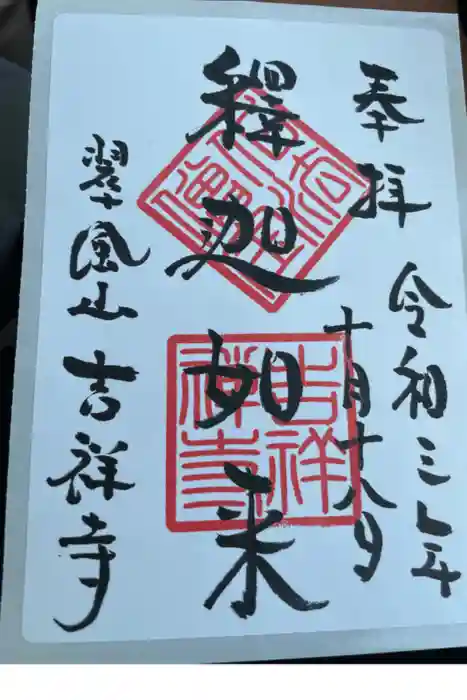 奉拝
令和三年
十月十八日
釋迦如来
吉祥寺
翠風山 吉祥寺